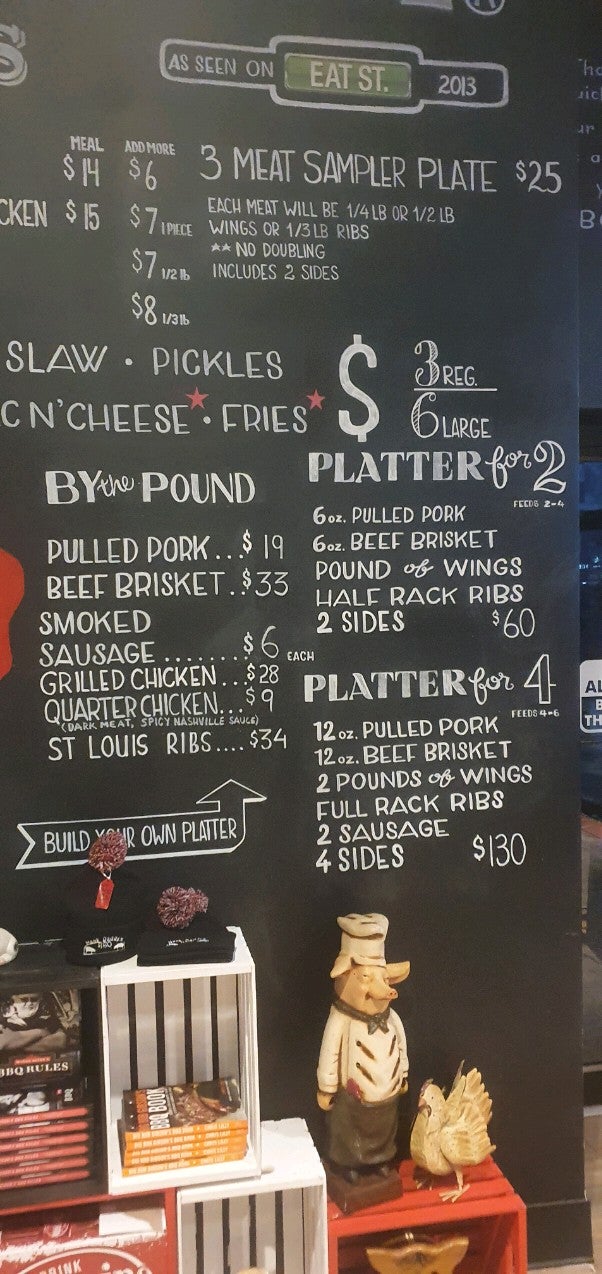 AS SEEN ON EAT ST. 2013
MEAL ADD MORE
$14 $6
3 MEAT SAMPLER PLATE $25
CKEN $15 $7 1 PIECE
$7 1/2 lb
$8 1/3 lb
EACH MEAT WILL BE 1/4 LB OR 1/2 LB
WINGS OR 1/3 LB RIBS
** NO DOUBLING
INCLUDES 2 SIDES
SLAW • PICKLES
C N' CHEESE • FRIES
$ 3 REG.
6 LARGE
BY the POUND
PULLED PORK...$19
BEEF BRISKET..$33
SMOKED
SAUSAGE ........$6 EACH
GRILLED CHICKEN...$28
QUARTER CHICKEN...$9
(DARK MEAT, SPICY NASHVILLE SAUCE)
ST LOUIS RIBS....$34
BUILD YOUR OWN PLATTER
PLATTER for 2
FEEDS 2-4
6 oz. PULLED PORK
6 oz. BEEF BRISKET
POUND of WINGS
HALF RACK RIBS
2 SIDES $60
PLATTER for 4
FEEDS 4-6
12 oz. PULLED PORK
12 oz. BEEF BRISKET
2 POUNDS of WINGS
FULL RACK RIBS
2 SAUSAGE
4 SIDES $130
AL
B
TH
BBQ RULES
BBQ BOOK